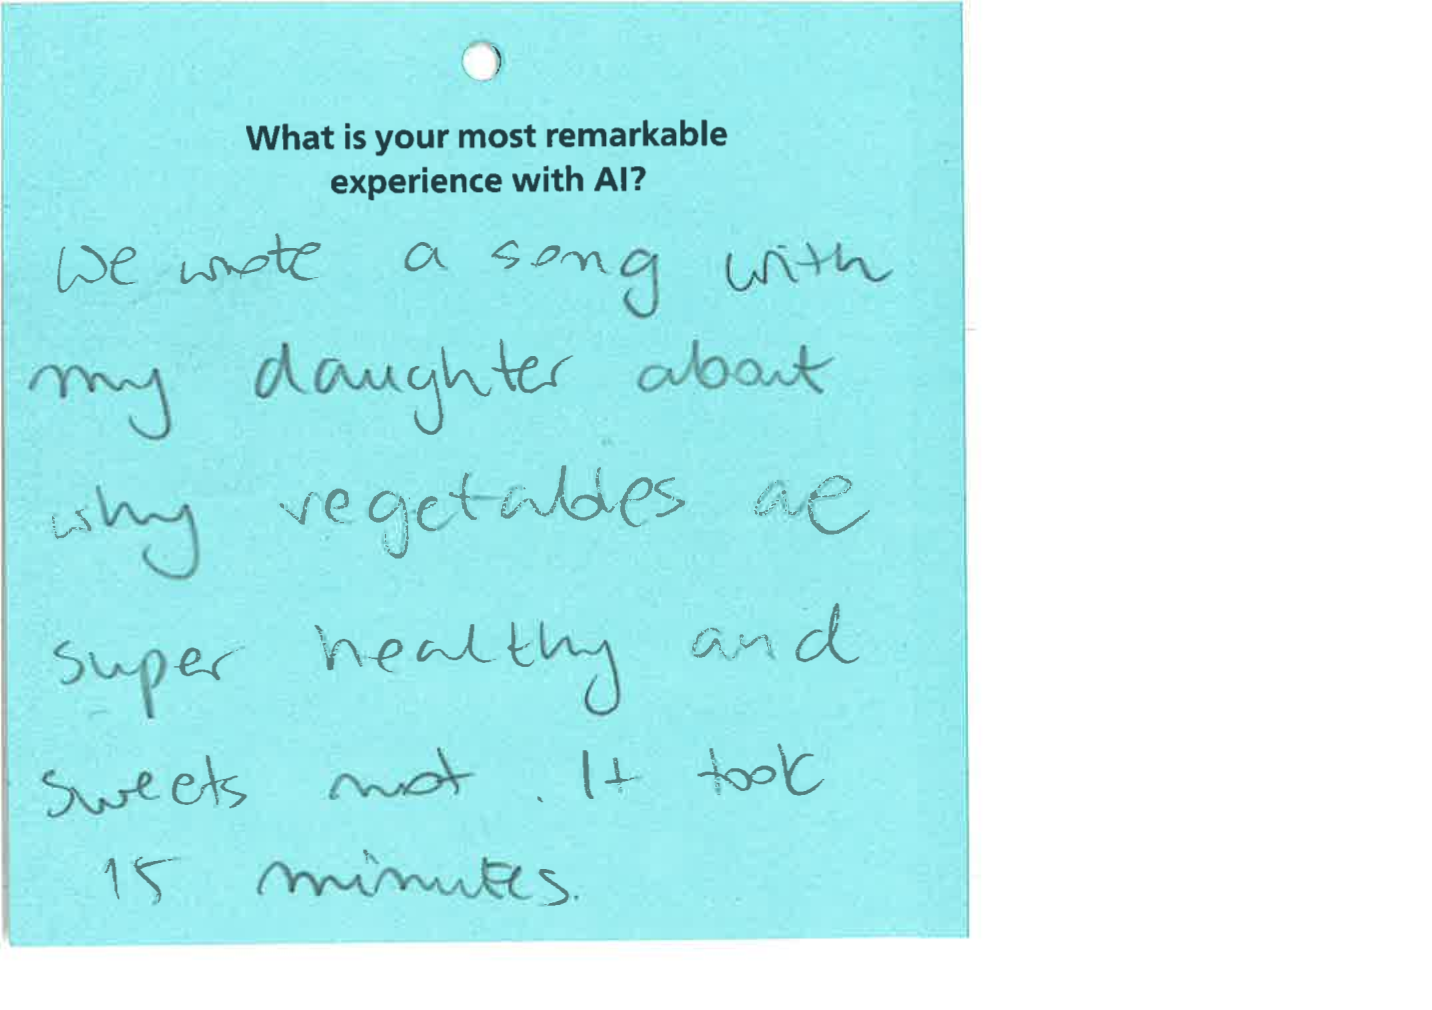 What is your most remarkable
experience with AI?
We wrote a song with
my daughter about
why vegetables ae
super healthy and
sweets not. It took
15 minutes.